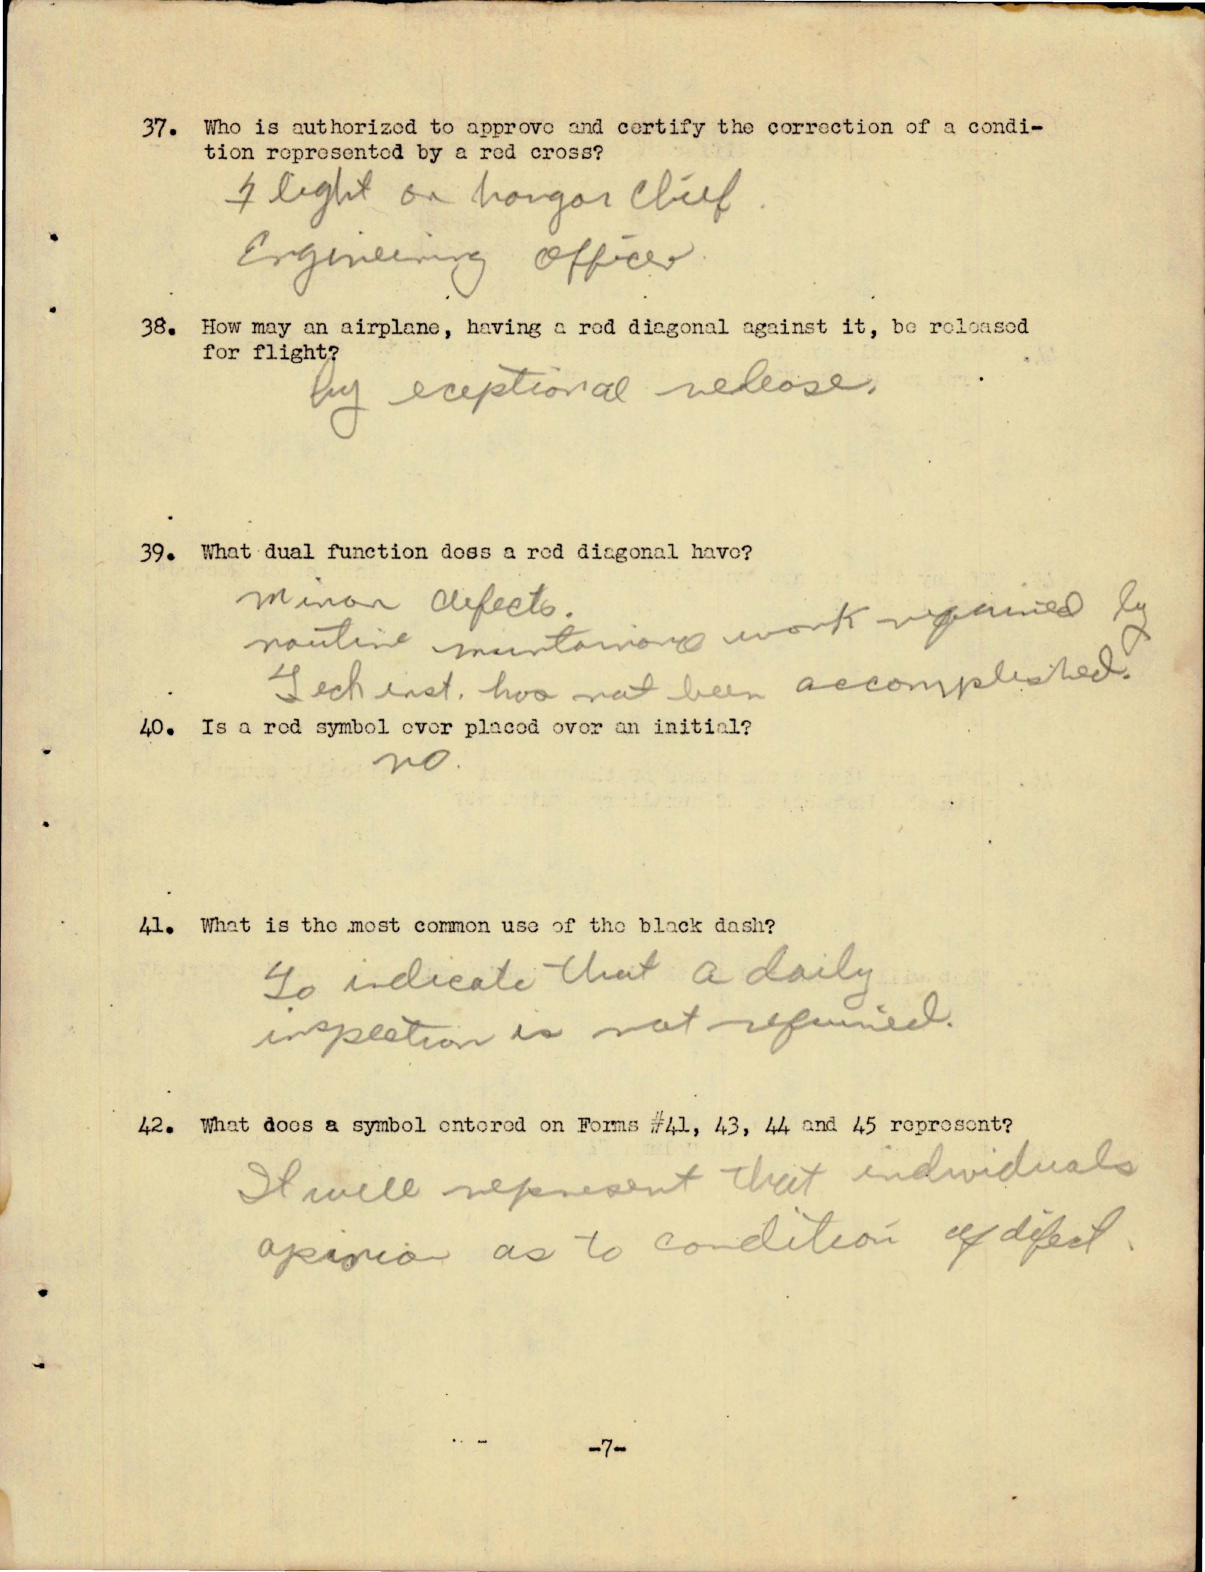 37. Who is authorized to approve and certify the correction of a condi-
tion represented by a red cross?
Flight or hangar Chief.
Engineering officer.
38. How may an airplane, having a red diagonal against it, be released
for flight?
by eceptional release.
39. What dual function does a red diagonal have?
minor defects.
routine work required by
Tech inst. has not been accomplished.
40. Is a red symbol ever placed over an initial?
no.
41. What is the most common use of the black dash?
To indicate that a daily
inspection is not required.
42. What does a symbol entered on Forms #41, 43, 44 and 45 represent?
It will represent that individuals
opinion as to condition of defect.
-7-